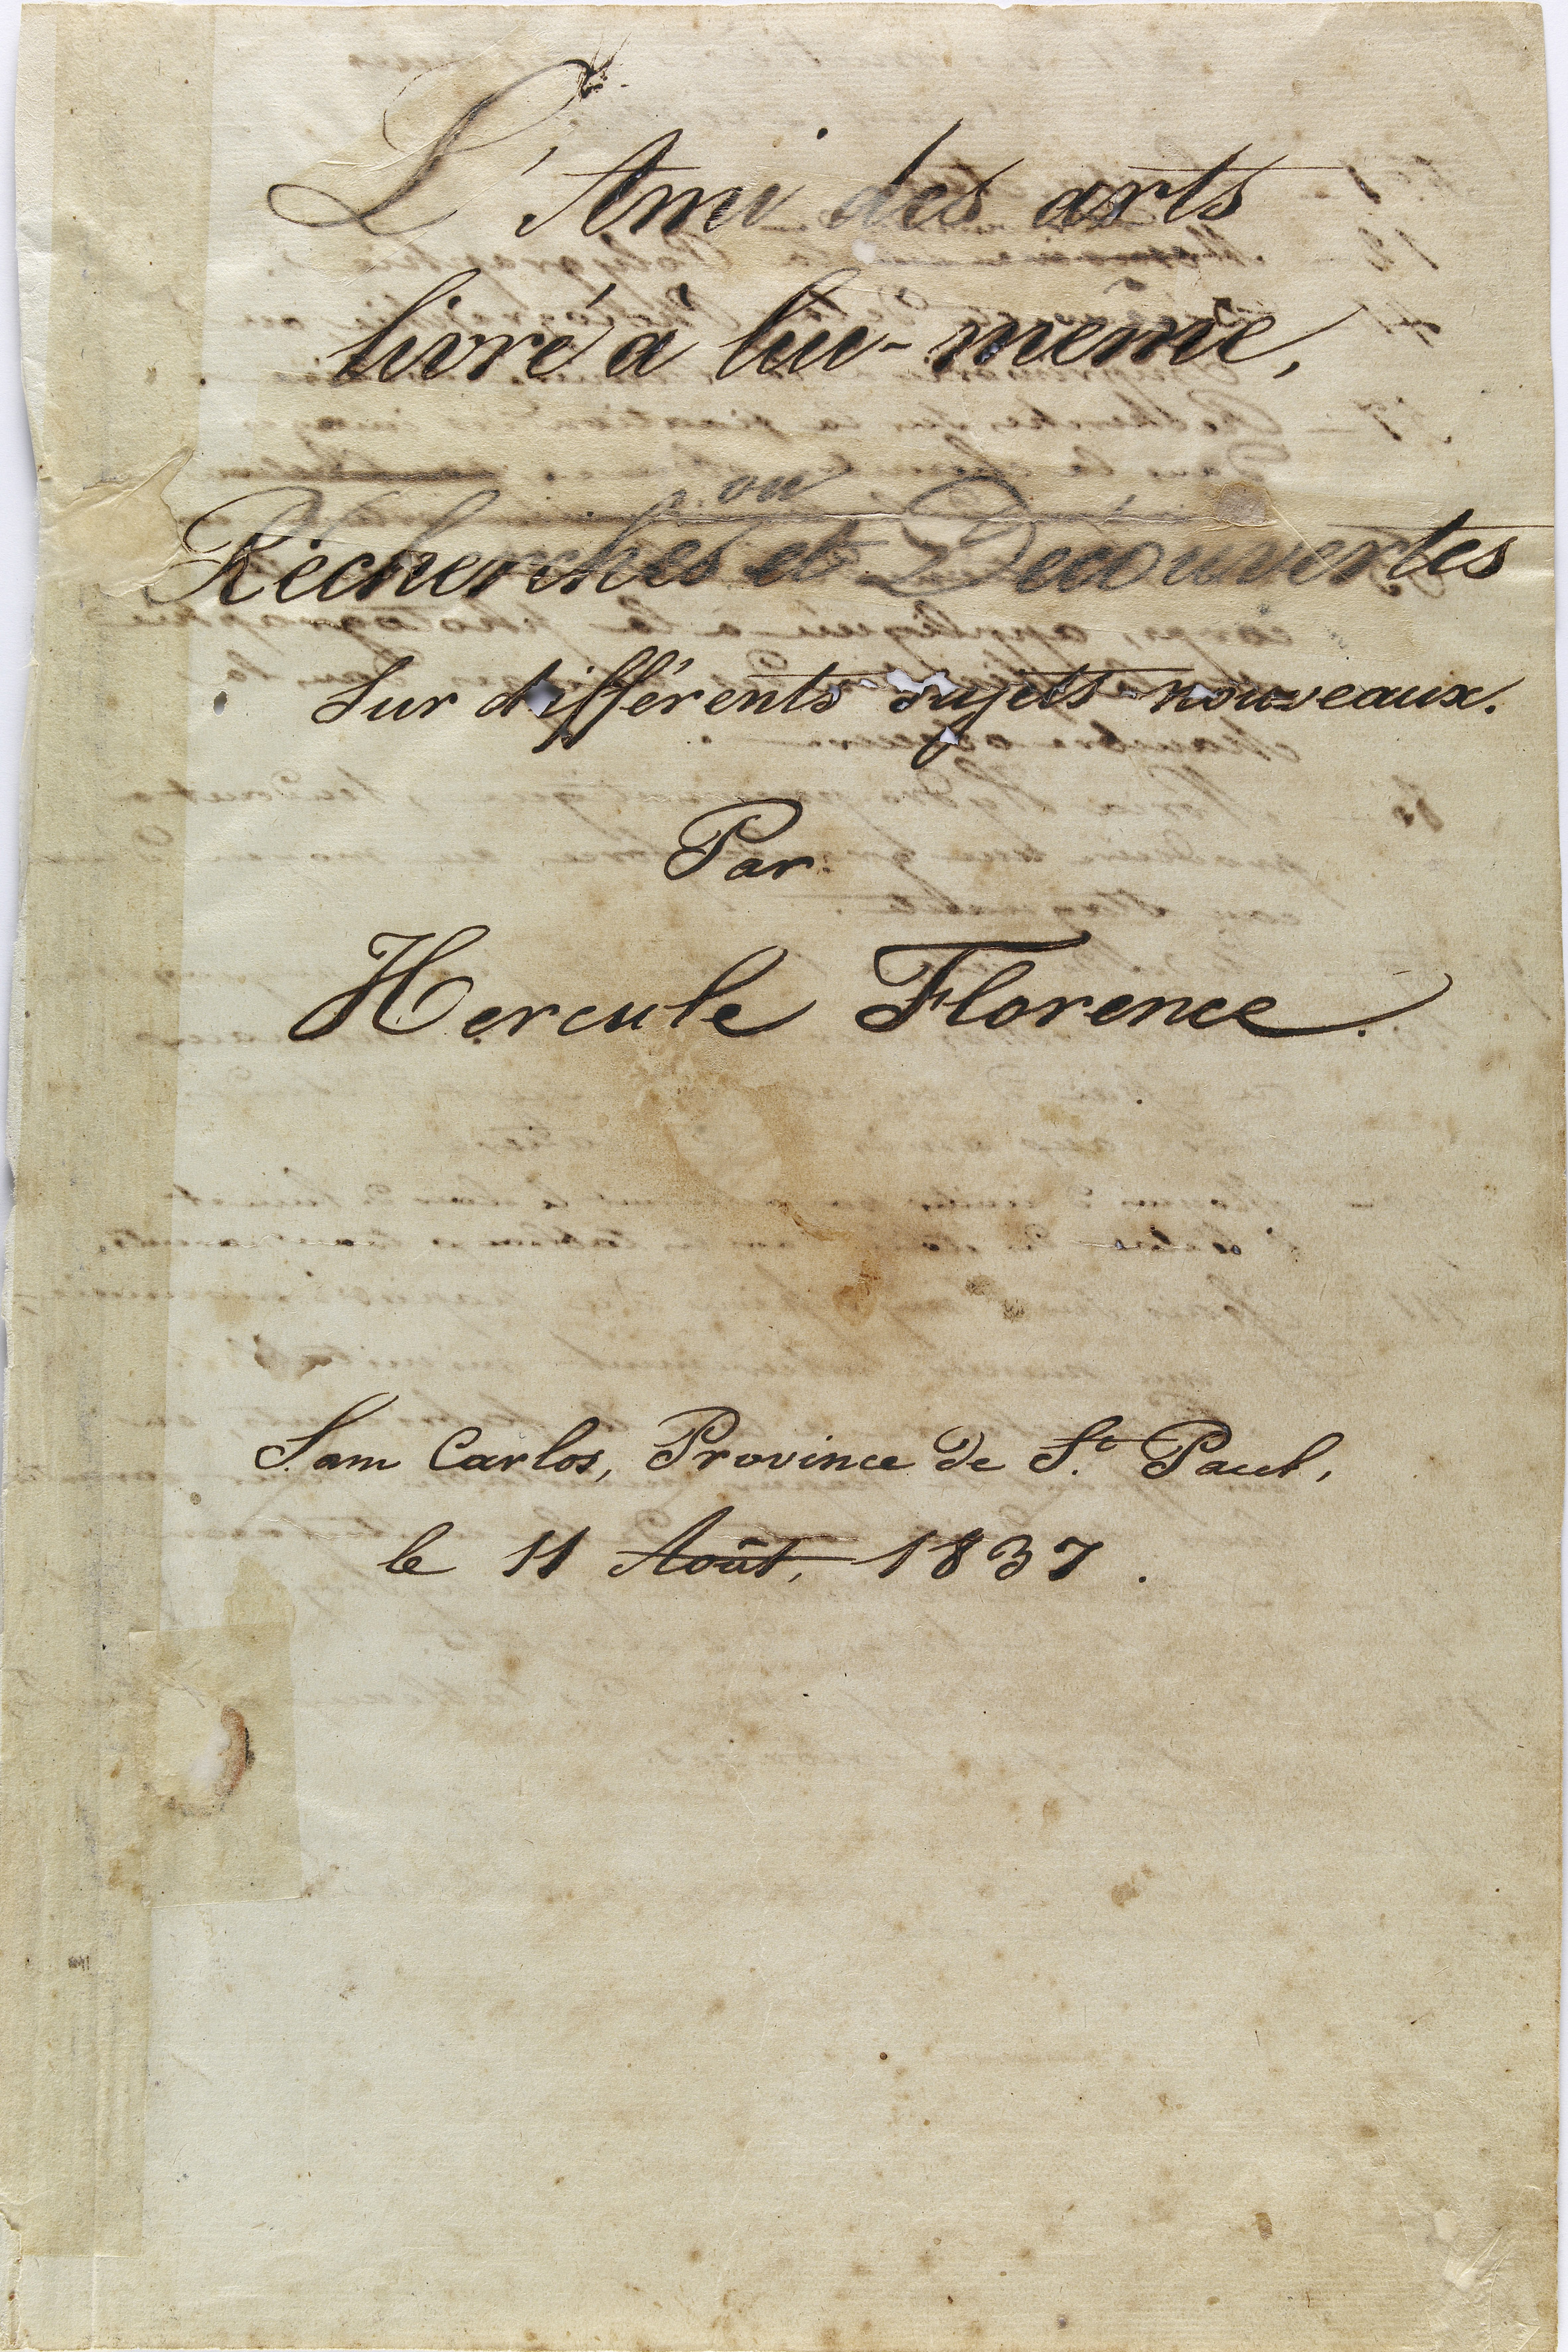 L'Ami des arts
livré à lui-même,
ou
Recherches et Découvertes
Sur différents sujets nouveaux.
Par
Hercule Florence.
Sam Carlos, Province de St. Paul,
le 11 Août, 1837.